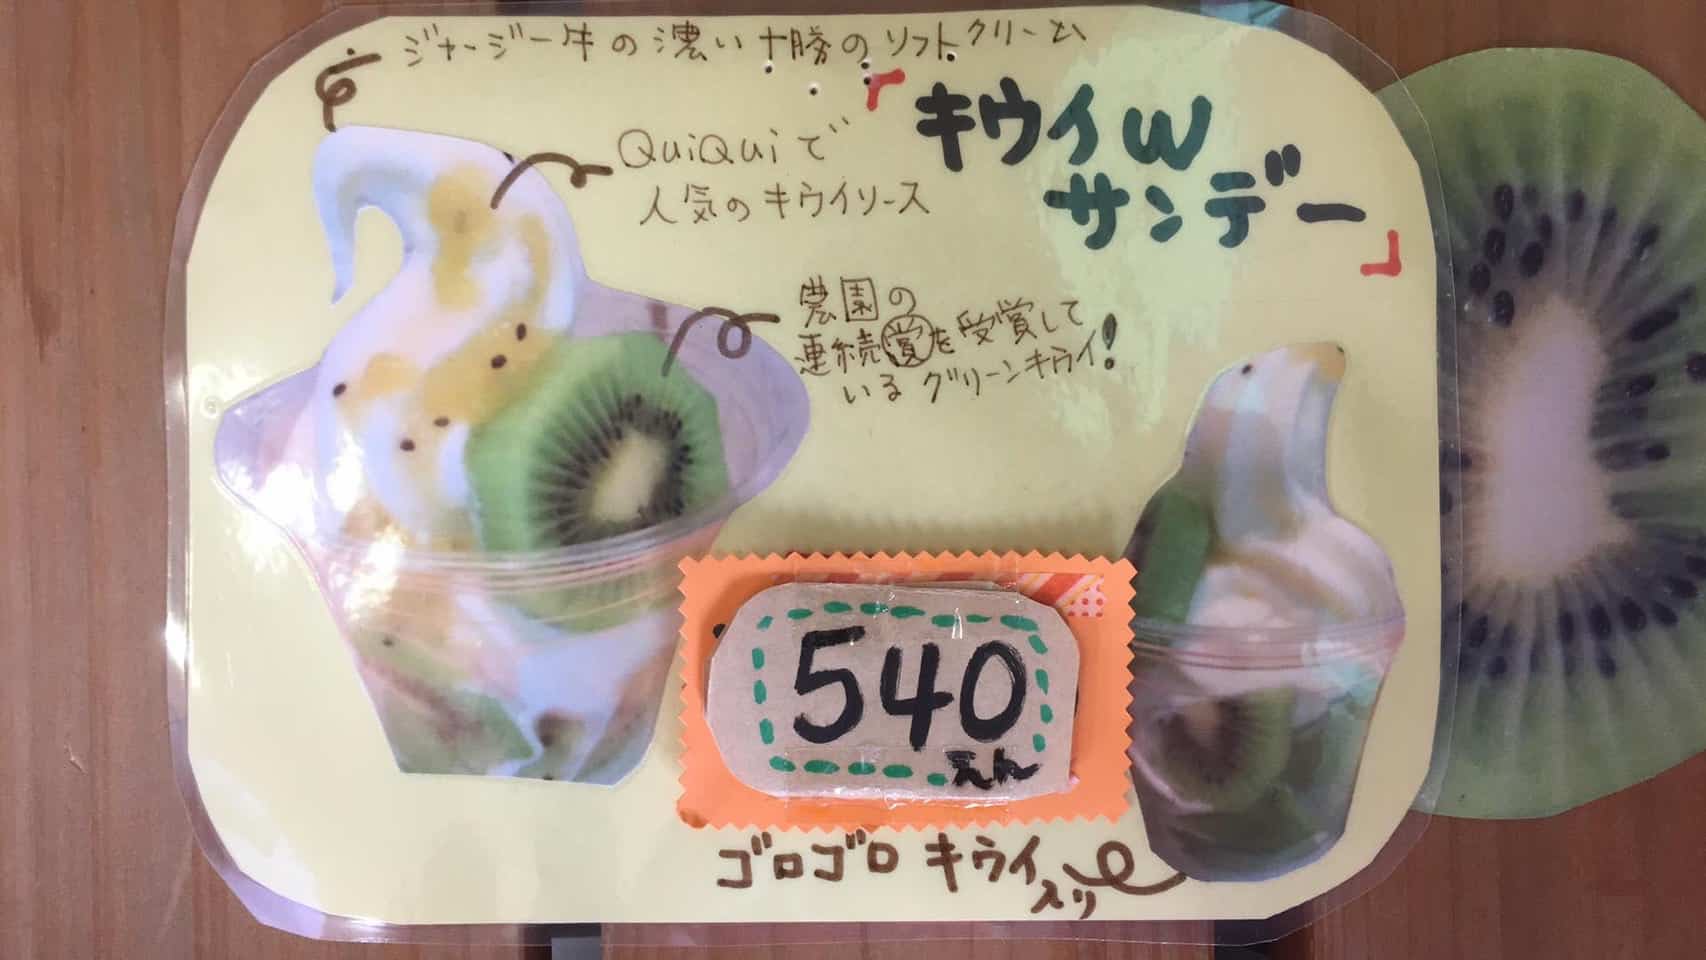 ジャージー牛の濃い十勝のソフトクリーム
「キウイW
サンデー」
QuiQuiで
人気のキウイソース
農園の
連続賞を受賞して
いるグリーンキウイ!
540
えん
ゴロゴロキウイ
入り